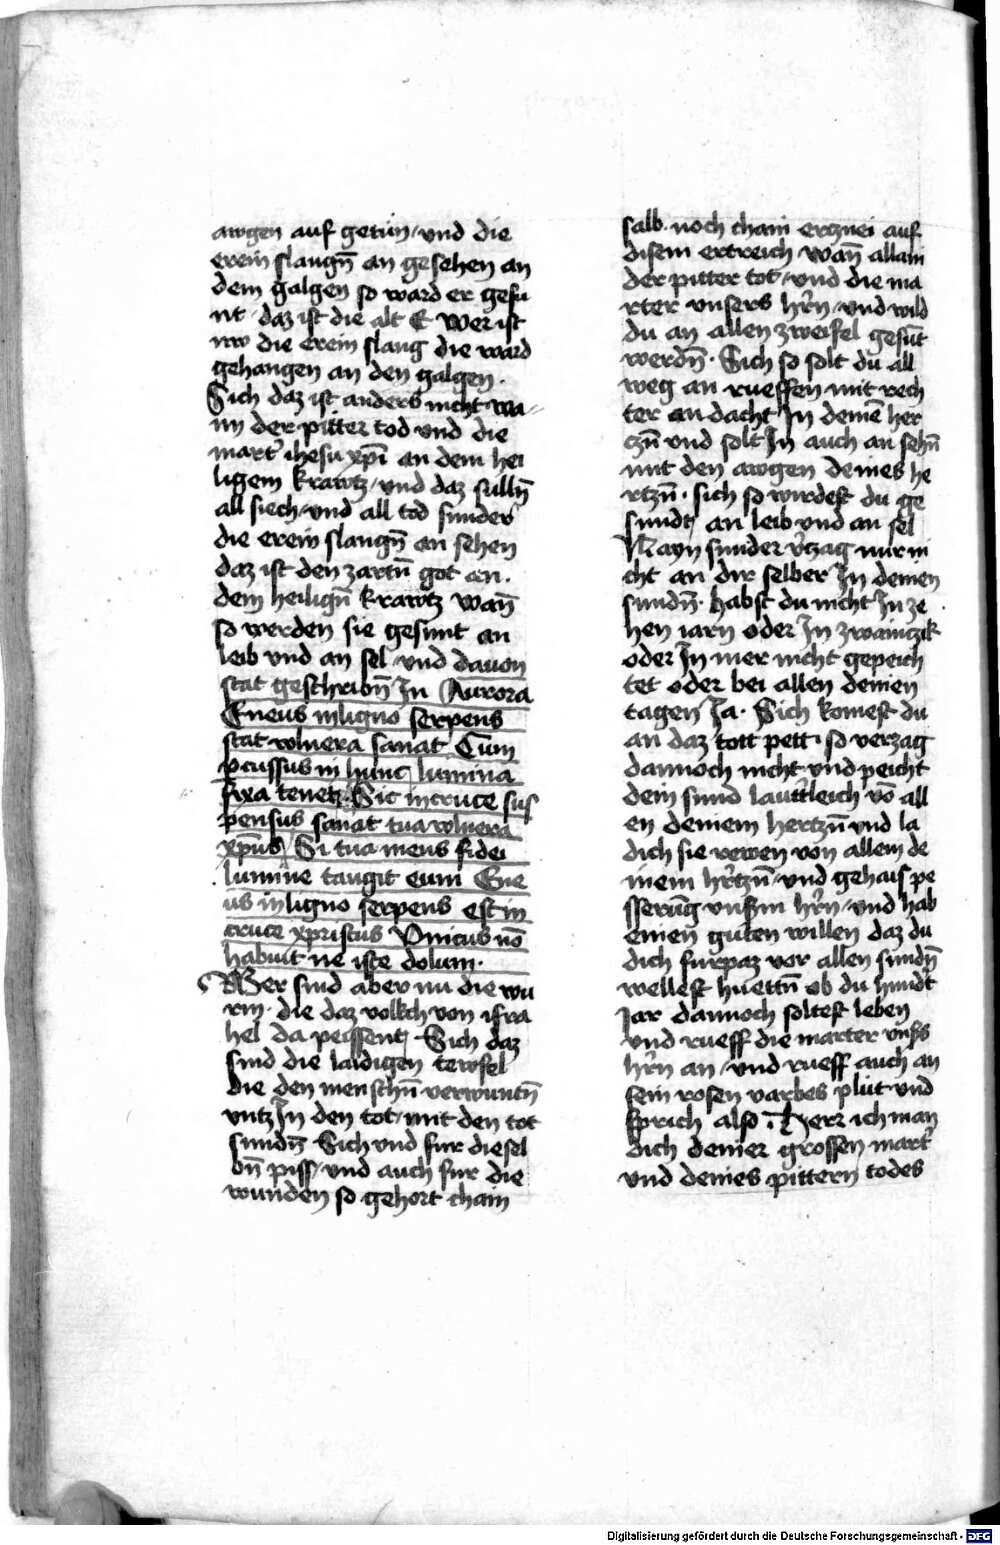 awgen auf getun / und die
erein slangn̄ an gesehen an
dem galgen so ward er gesu
nt / daz ist die alt E Wer ist
nw die erein slang die ward
gehangen an den galgen .
Sich daz ist anders nicht wa
nn der pitter tod und die
mart' ihesu xp̄i an dem hei
ligem krawtz / und daz sulln̄
all siech / und all tod sunder
die erein slangn̄ an sehen
daz ist den zartn̄ got an .
dem heilign̄ krawtz wan̄
so werden sie gesunt an
leib und an sel / und davon
stat geschribn̄ In Aurora
Eneus in ligno serpens
stat wlnera sanat Cum
pcussus in hunc lumina
fixa tenet . Sic in cruce sus
pensus sanat tua wlnera
xp̄us / Si tua mens fidei
lumine tangit eum Ene
us in ligno serpens est in
cruce xpristus Unicus nō
habuit ne iste dolum .
Wer sind aber nu die wu
rm . die daz volkch von isra
hel da peissent / Sich daz
sind die laidigen tewfel
die den menschn̄ verwuntn̄
untz In den tot / mit den tot
sundn̄ Sich und fur diesel
bn̄ piss / und auch fur die
wunden so gehort chain
salb . noch chain ercznei auf
disem ertreich / wan̄ allain
der pitter tot / und die ma
rter unsers hr̄n / und wild
du an allen zweifel gesūt
werdn̄ . Sich so solt du all
weg an rueffen mit rech
ter an dacht In deinē her
czn̄ und solt In auch an sehn̄
mit den awgen deines he
rtzn̄ . sich so wirdest du ge
sundt / an leib und an sel
Nayn sunder v'zag nur ni
cht an dir selber In deinen
sundn̄ . habst du nicht In ze
hen iarn oder In zwainczik
oder In mer nicht gepeich
tet oder bei allen deinen
tagen Ja . Sich komest du
an daz tott pett . so verzag
dannoch nicht und peicht
dein sund lautt'leich vō all
en deinem hertzn̄ und la
dich sie rewen von allem de
inem hr̄tzn̄ / und gehais pe
sserūg uns'm hr̄n / und hab
einen guten willen daz du
dich furpaz vor allen sundn̄
wellest huettn̄ ob du hundt
Jar dannoch soltest leben
und rueff die marter uns's
hr̄n an / und rueff auch an
sein rosen varbes plut und
sprich also . Herr ich man
dich deiner grossen mart'
und deines pittern todes
Digitalisierung gefördert durch die Deutsche Forschungsgemeinschaft - DFG